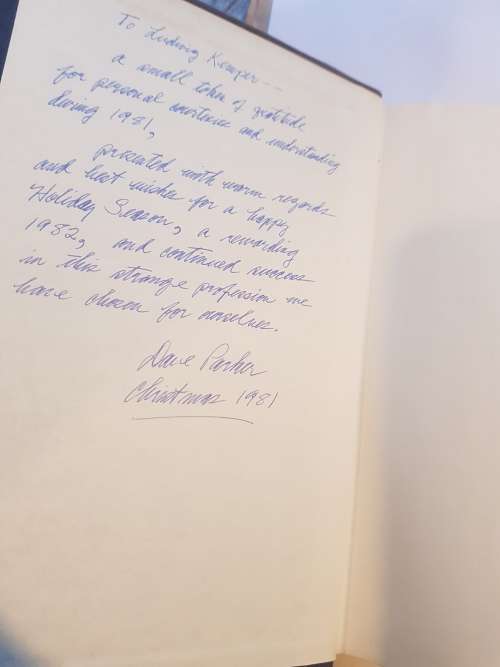 To Ludwig Kemper--
a small token of gratitude
for personal courtesies and understanding
during 1981,
presented with warm regards
and best wishes for a happy
Holiday Season, a rewarding
1982, and continued success
in this strange profession we
have chosen for ourselves.
Dave Parker
Christmas 1981